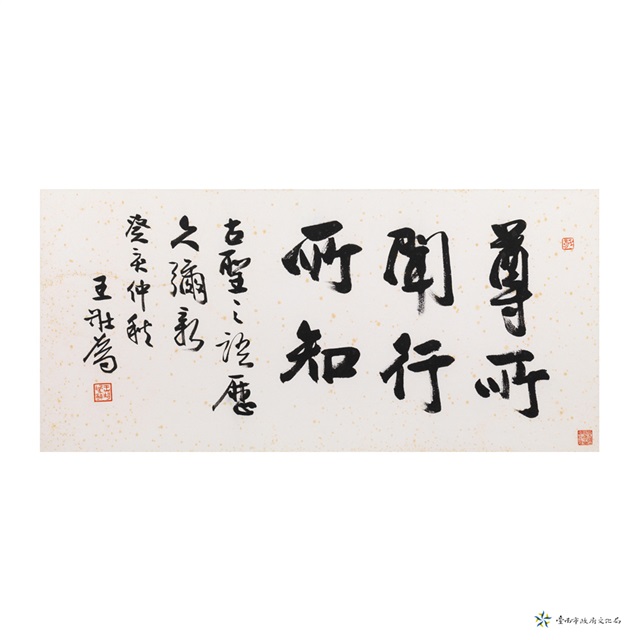 尊所
聞行
所知
古聖之證歷
久彌新
癸亥仲秋
王壯為
臺南市政府文化局